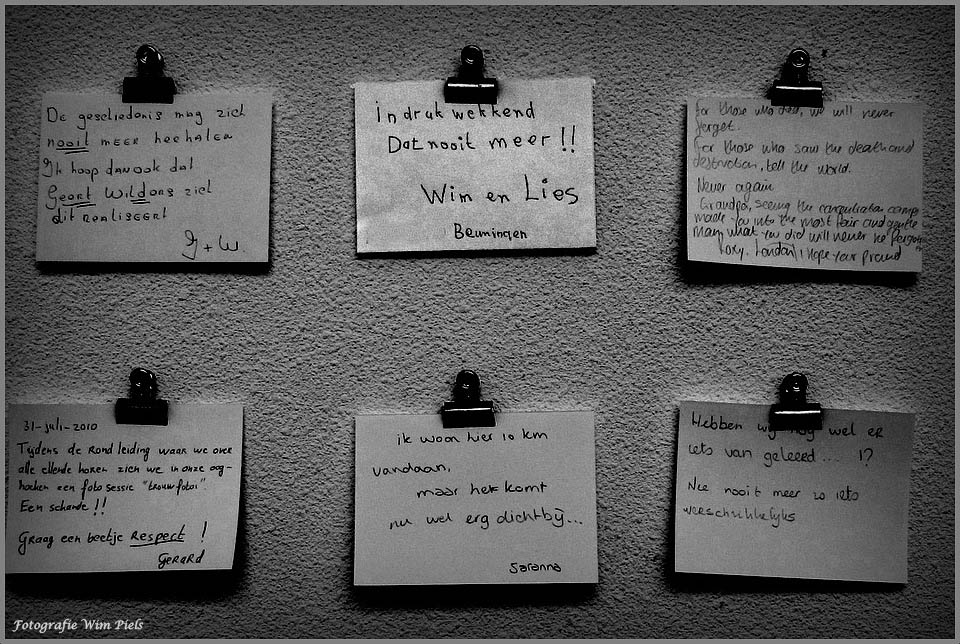 De geschiedenis mag zich
nooit meer herhalen
Ik hoop dan ook dat
Geert Wilders zich
dit realiseert
J + W
Indrukwekkend
Dat nooit meer !!
Wim en Lies
Beuningen
For those who died, we will never
forget.
For those who saw the death and
destruction, tell the world.
Never again
Grandpa, seeing the concentration camp
made you into the most fair and gentle
man, what you did will never be
Roxy, London, I hope your proud
31-juli-2010
Tijdens de Rondleiding waar we over
alle ellende horen zien we in onze oog-
hoeken een foto sessie "trouwfoto's".
Een schande!!
Graag een beetje Respect !
Gerard
ik woon hier 10 km
vandaan,
maar het komt
nu wel erg dichtbij...
Hebben wij nog wel er
iets van geleerd... !?
Nee nooit meer zo iets
verschrikkelijks
Fotografie Wim Piels